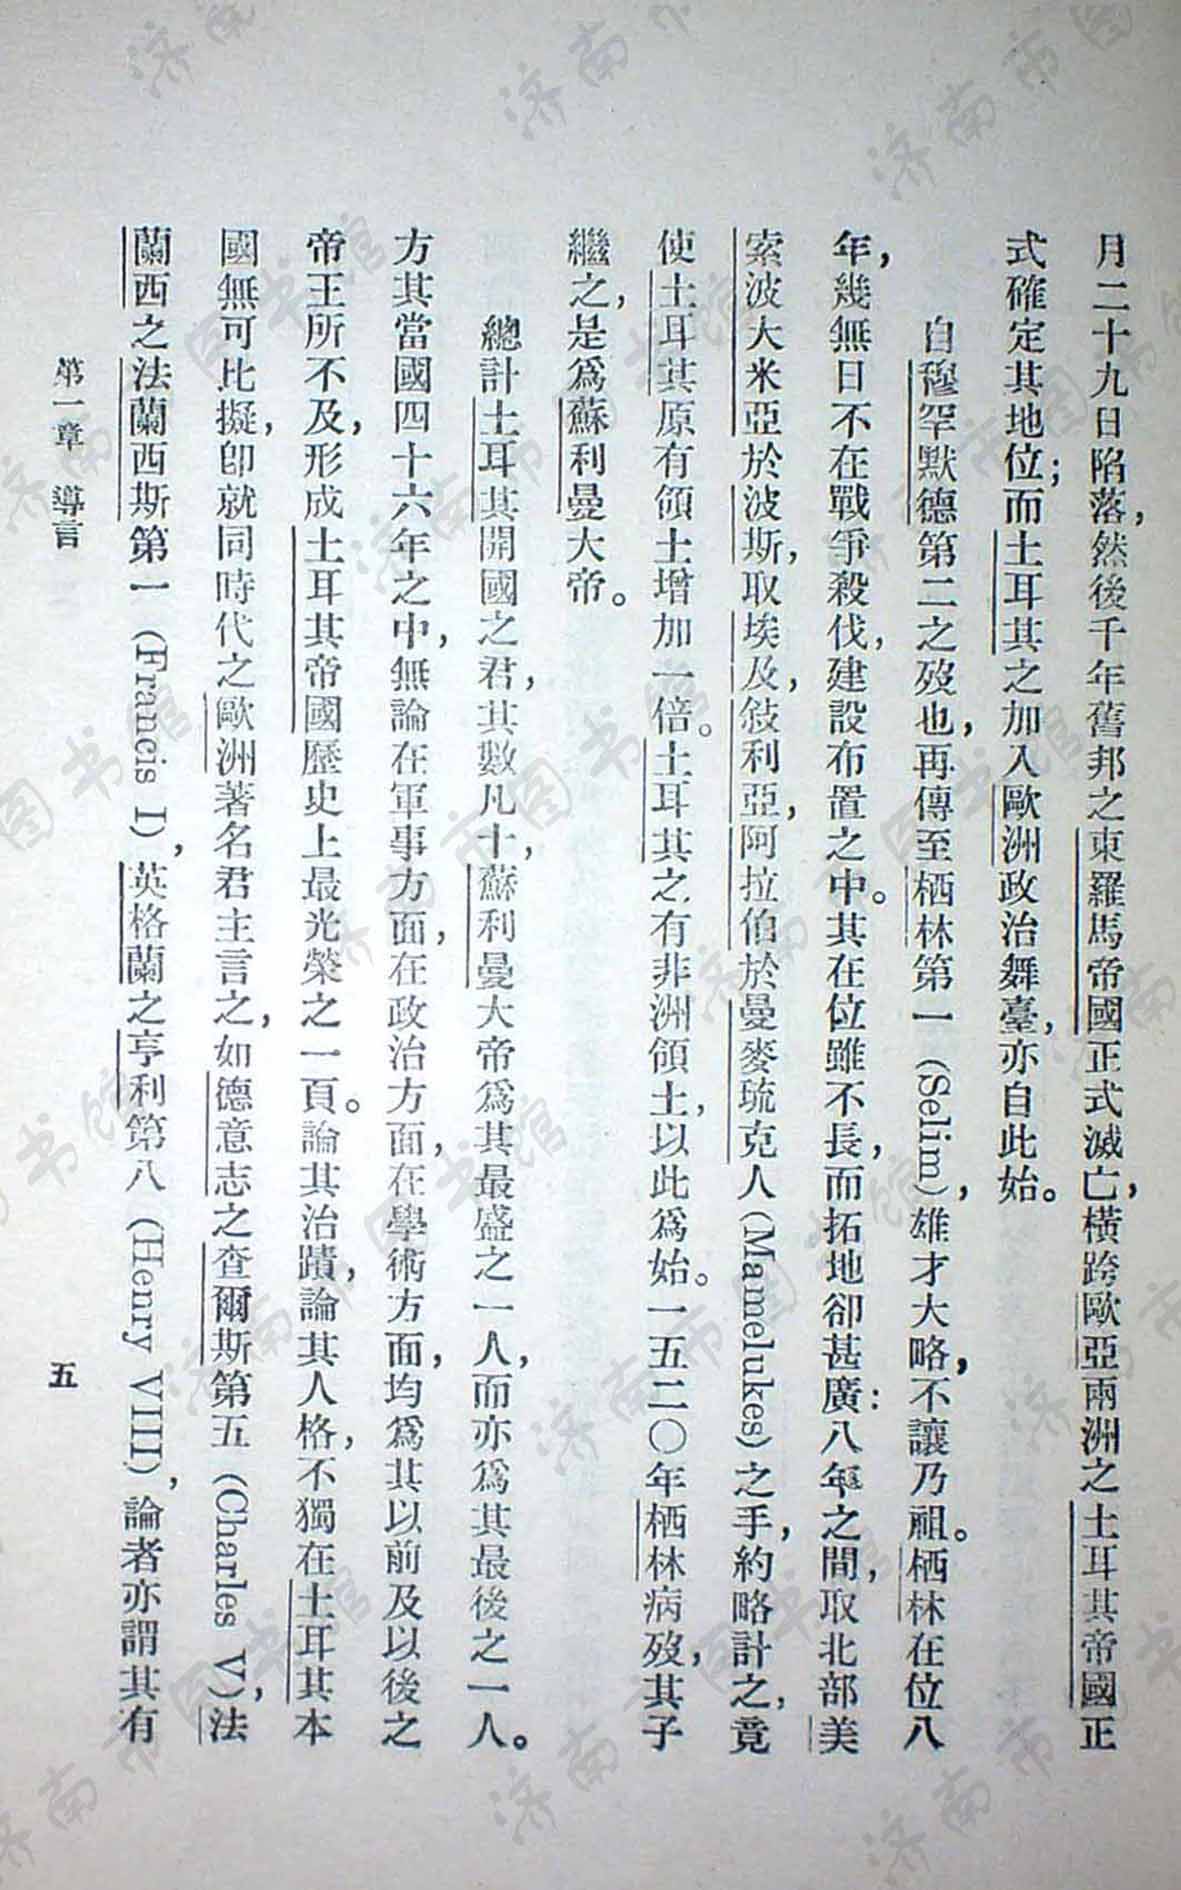 月二十九日陷落，然後千年舊邦之東羅馬帝國正式滅亡，橫跨歐亞兩洲之土耳其帝國正
式確定其地位；而土耳其之加入歐洲政治舞臺，亦自此始。
自穆罕默德第二之歿也，再傳至栖林第一（Selim），雄才大略，不讓乃祖。栖林在位八
年，幾無日不在戰爭殺伐，建設布置之中。其在位雖不長，而拓地卻甚廣：八年之間，取北部美
索波大米亞於波斯，取埃及，敍利亞，阿拉伯於曼麥琉克人（Mamelukes）之手，約略計之，竟
使土耳其原有領土增加一倍。土耳其之有非洲領土，以此爲始。一五二〇年栖林病歿，其子
繼之，是爲蘇利曼大帝。
總計土耳其開國之君，其數凡十，蘇利曼大帝爲其最盛之一人，而亦爲其最後之一人。
方其當國四十六年之中，無論在軍事方面，在政治方面，在學術方面，均爲其以前及以後之
帝王所不及，形成土耳其帝國歷史上最光榮之一頁。論其治蹟，論其人格，不獨在土耳其本
國無可比擬，卽就同時代之歐洲著名君主言之，如德意志之查爾斯第五（Charles V），法
蘭西之法蘭西斯第一（Francis I），英格蘭之亨利第八（Henry VIII），論者亦謂其有
第一章 導言
五
济南市图书馆